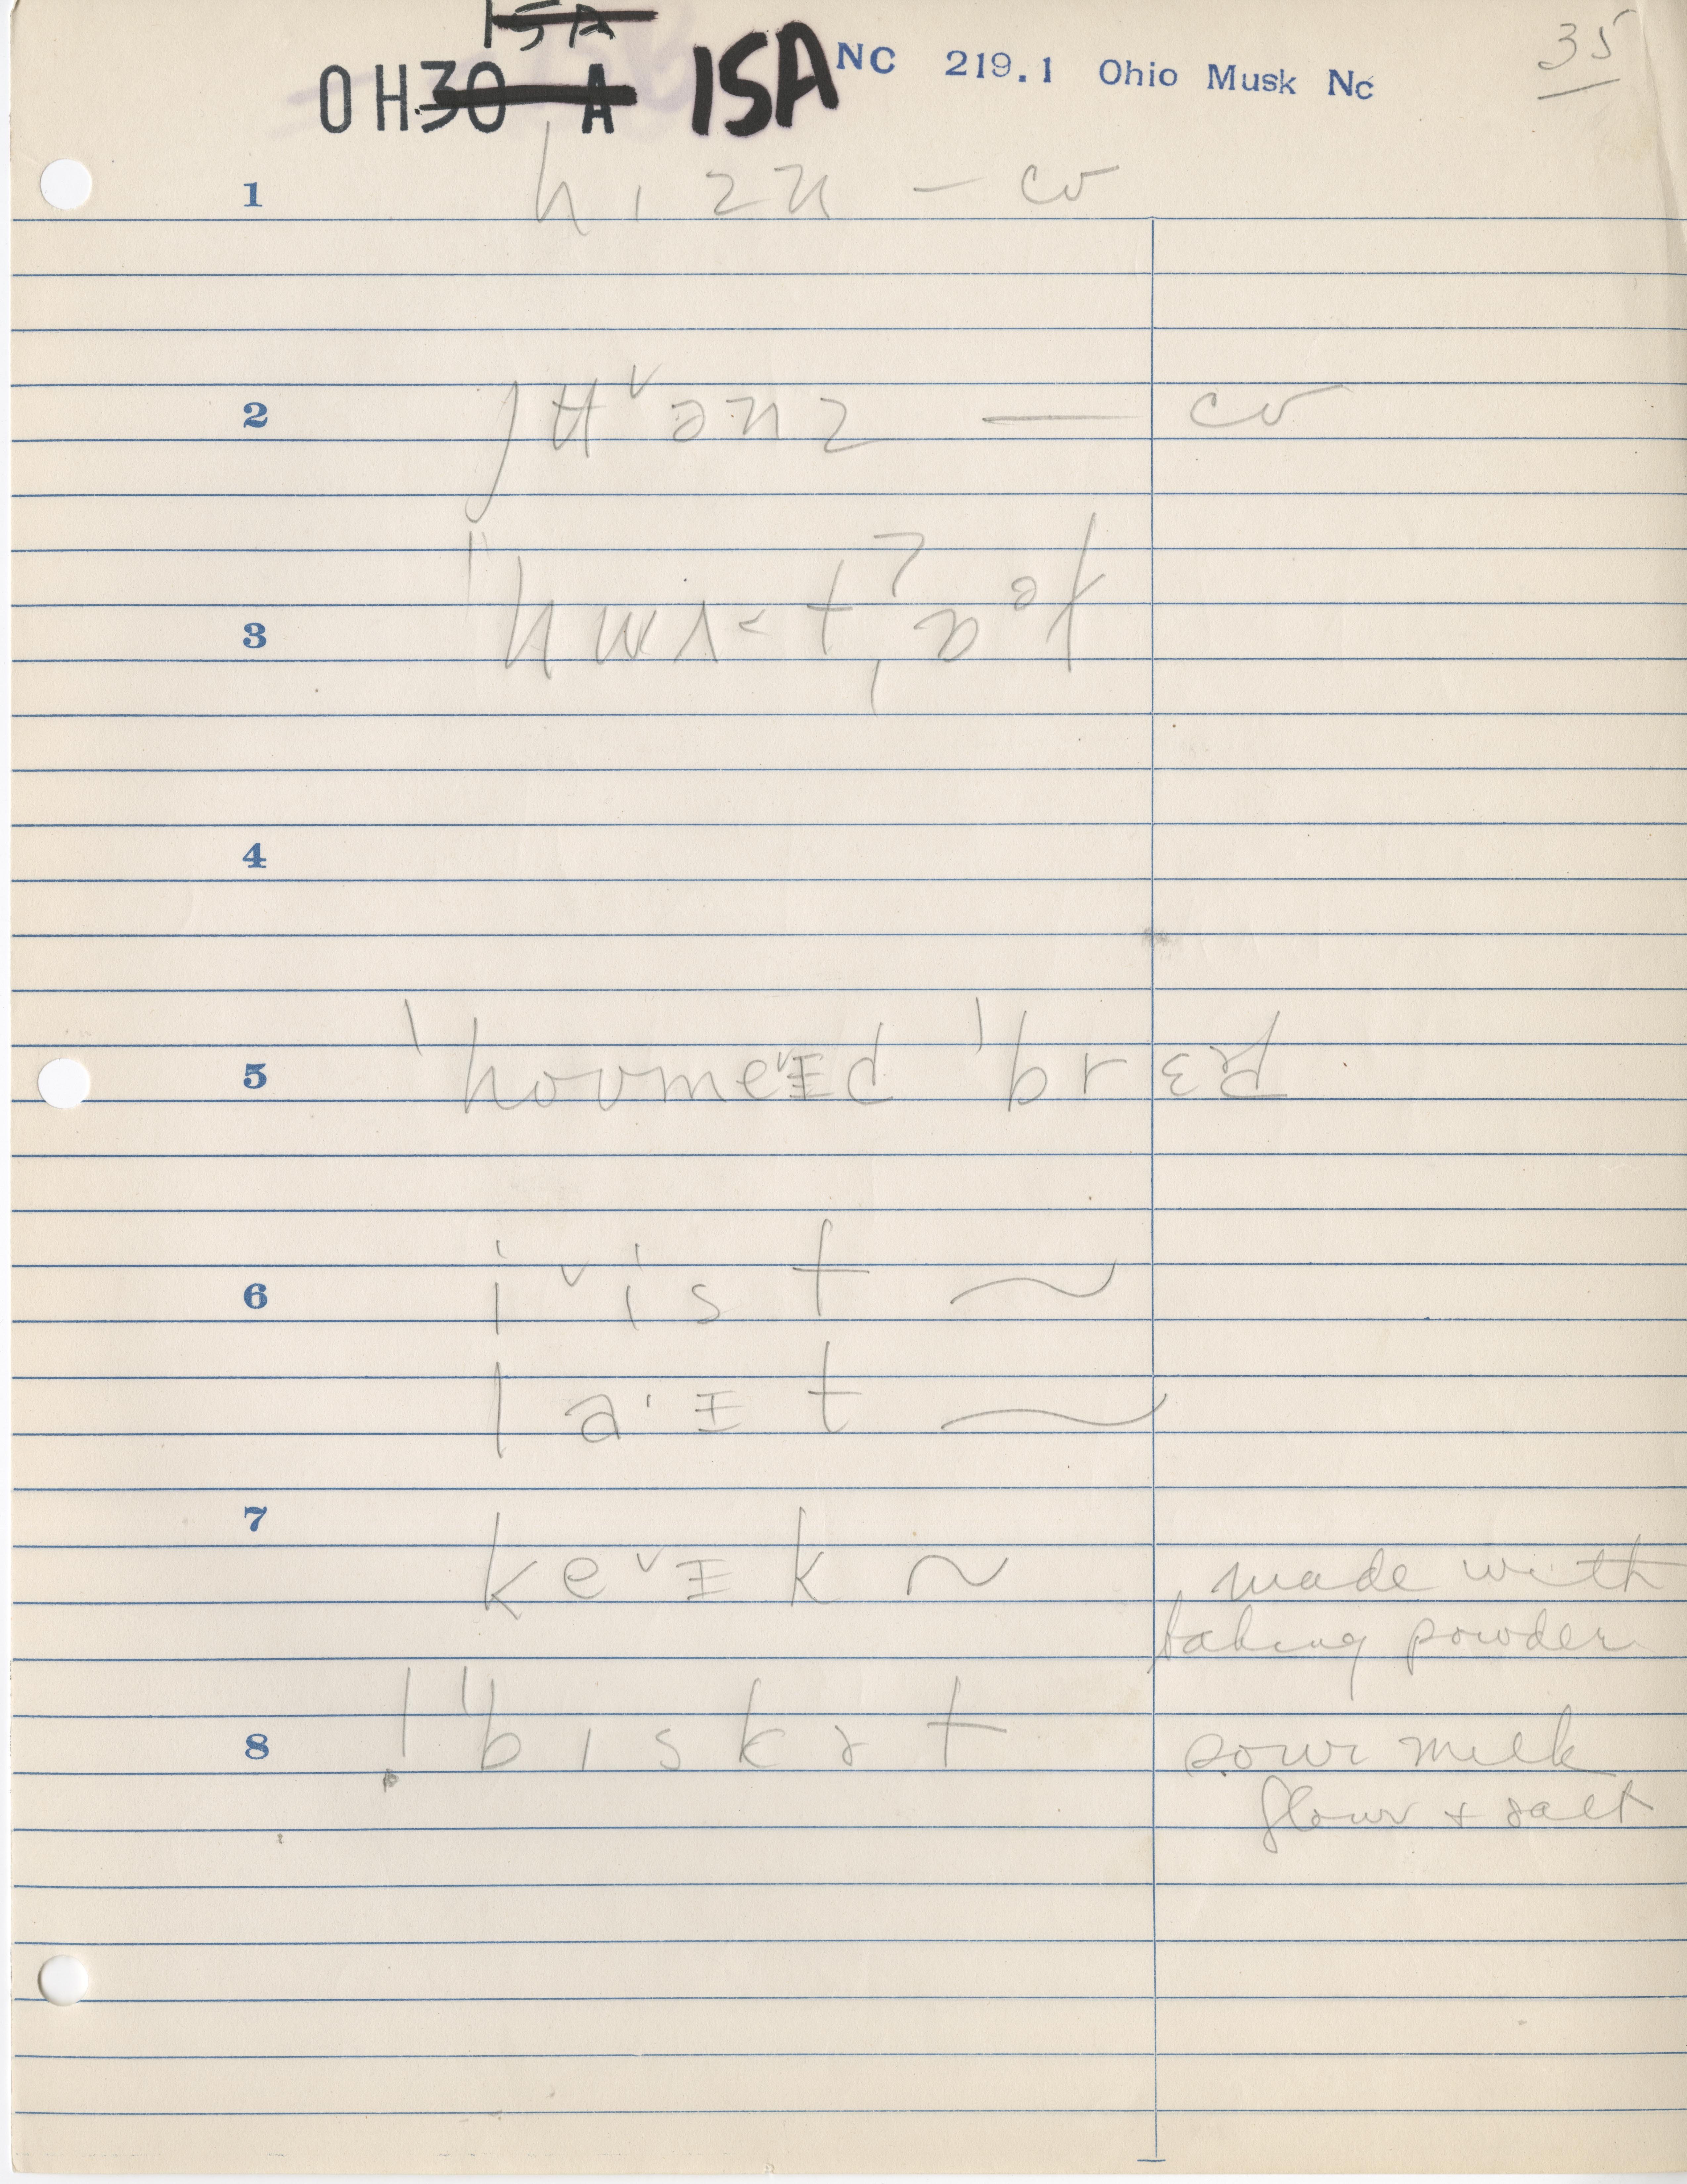 15A
OH30 A 15A NC 219.1 Ohio Musk Nc 35
1 hɪzn — cv
2 cv
3
4
5 ˈhoʊmeᵛɪd ˈbrɛd
6 iᵛist ~
laˈɪt ~
7 keᵛɪk ~ made with
baking powder
8 ! "biskɪt sour milk
flour + salt